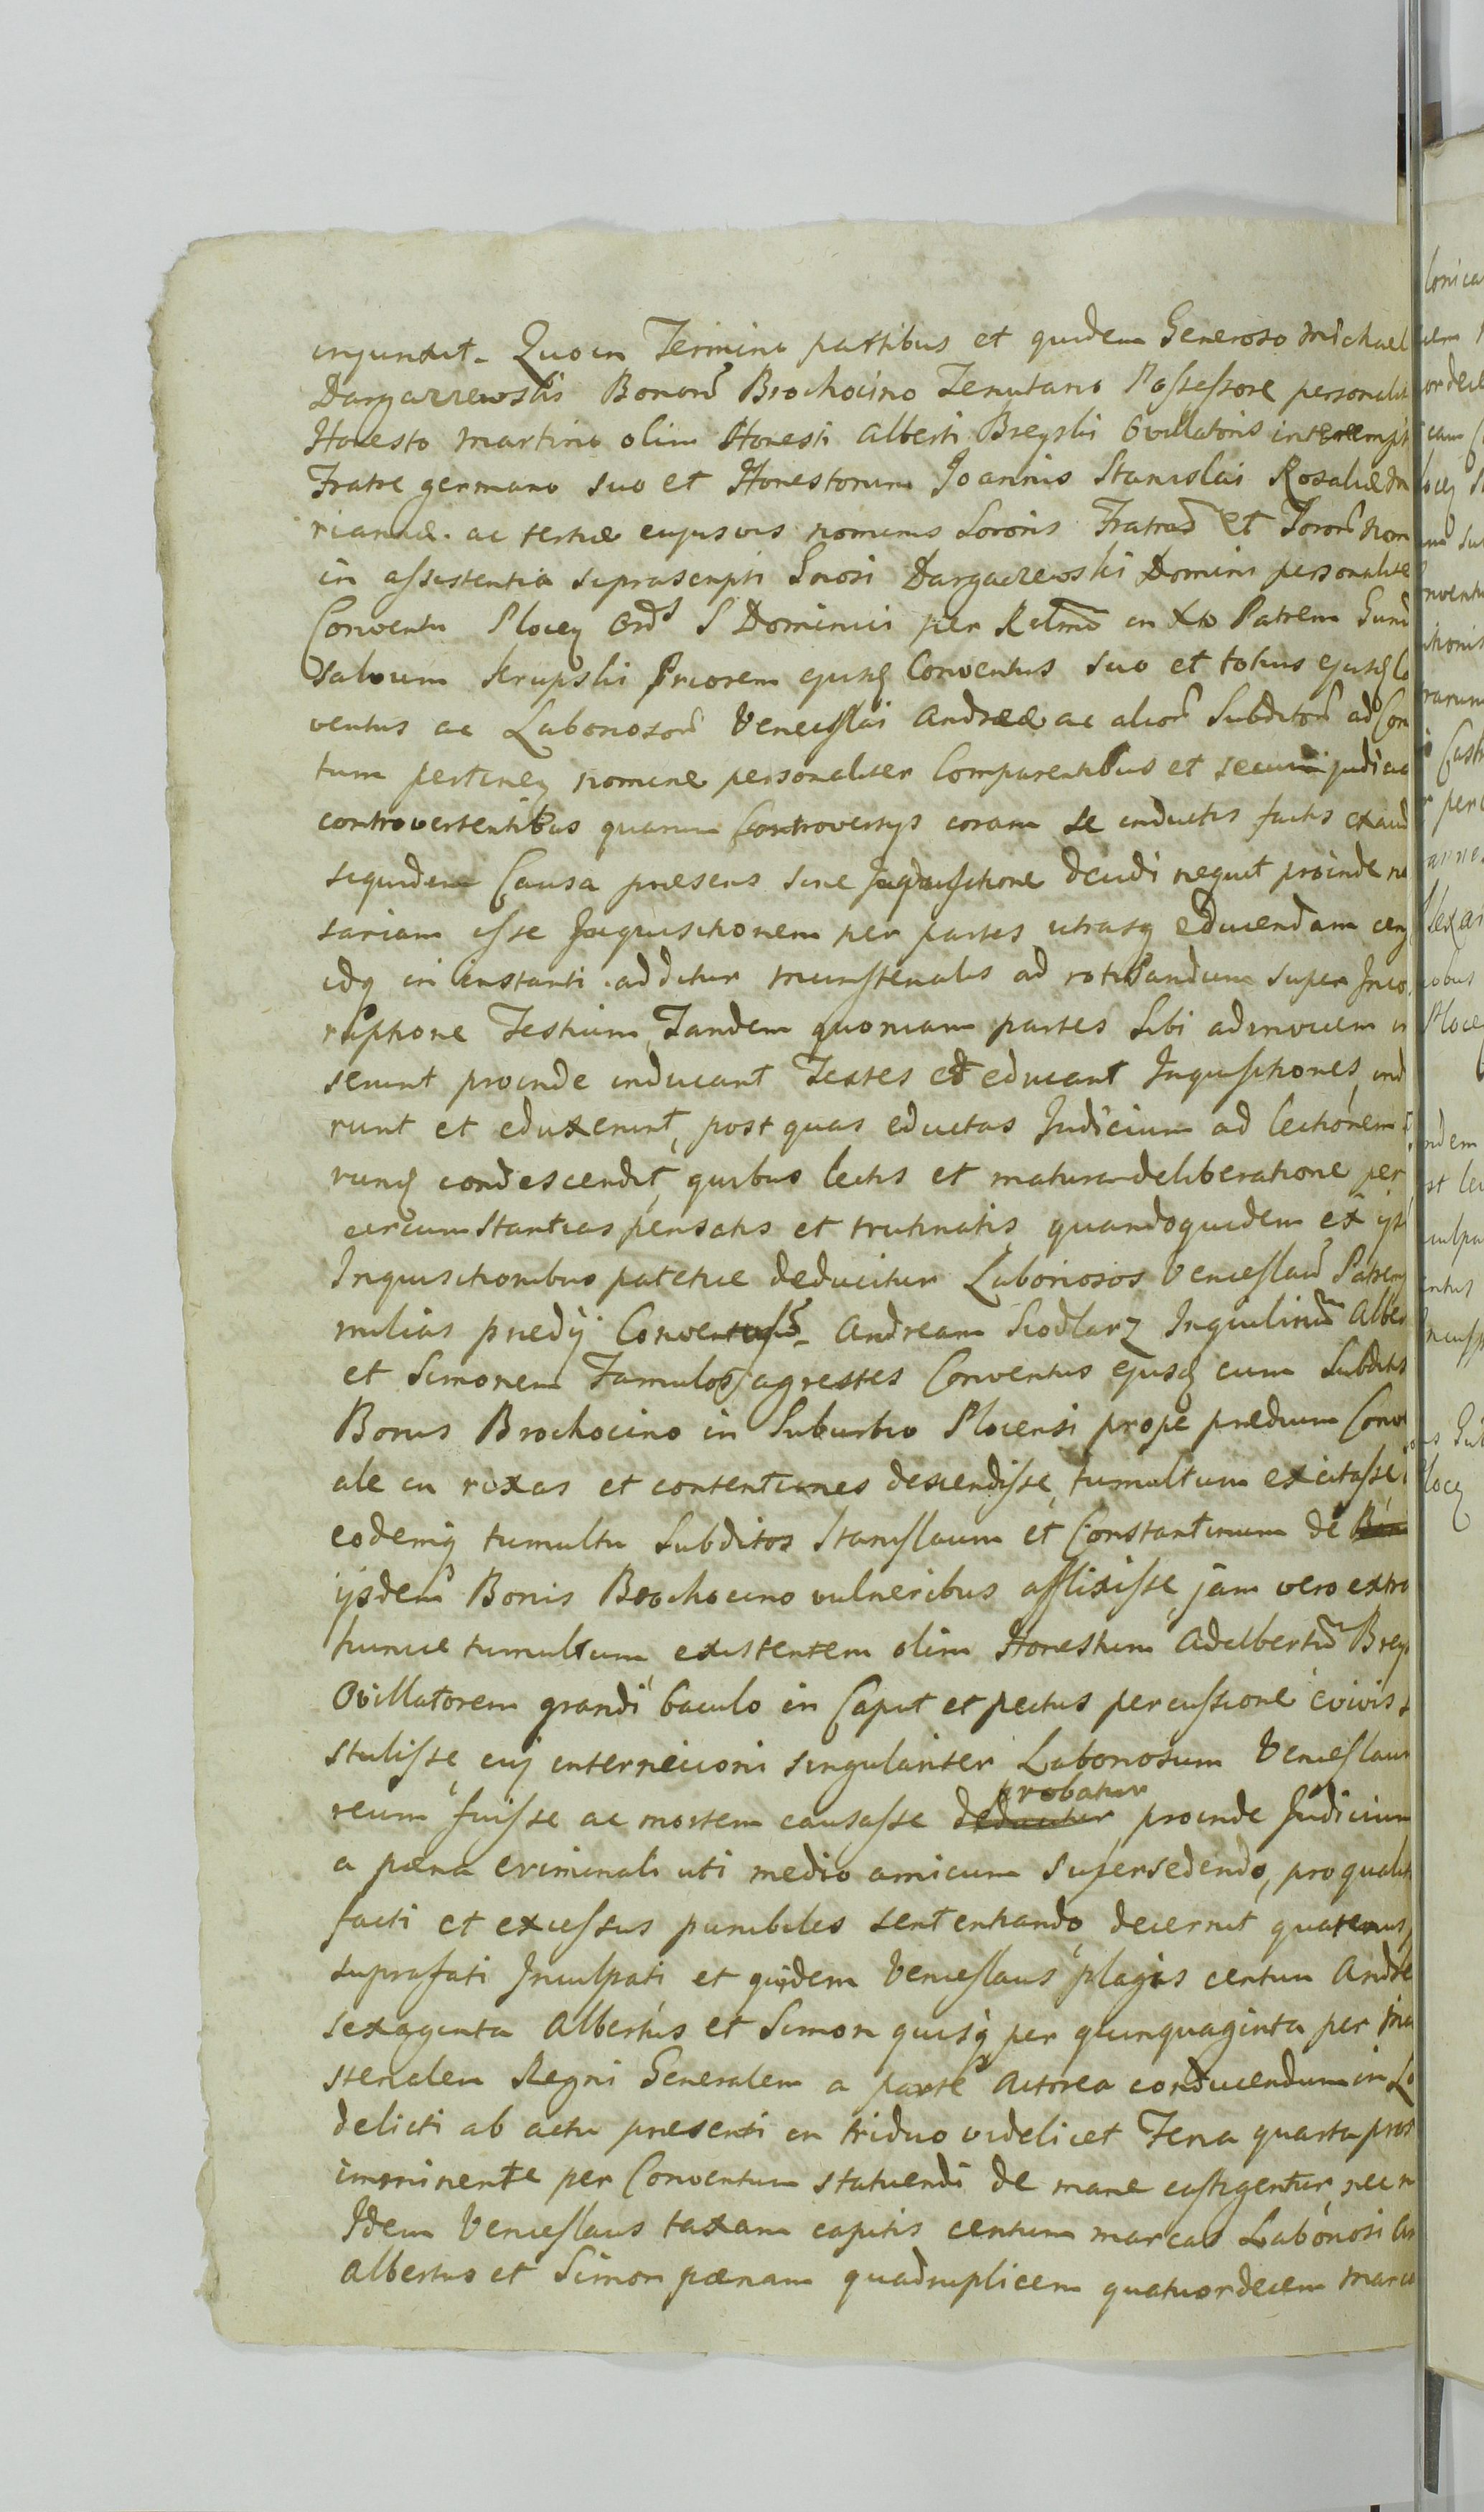 injunxit. Quo in Termino partibus et quidem Generoso Michael
Dargazewski Bonorũ Brochocino Tenutario Possessore personalit
Honesto Martino olim Honesti Alberti Breyski Ovillatoris interempt
Fratre germano suo et Honestorum Joannis Stanislai Rosaliæ Ma
riannæ ac tertiæ cujusvis nominis Sororis Fratrũ et Sororũ nom
in assistentia suprascripti Gnosi Dargazewski Domini personalite
Conventu Plocen Ordĩs S Dominici per Relmũ in Xto Patrem Gund
salvum Krupski Priorem ejusq Conventus suo et totius ejusq Co
ventus ac Laboriosorũ Venceslai Andreæ ac aliorũ Subditorũ ad Con
tum pertineñ nomine personaliter Comparentibus et secum judicia
controvertentibus quarum Controversys coram se inductis factis exaud
siquidem Causa præsens sine Inquisitione decidi nequit proinde ne
sariam esse Inquisitionem per partes utrasq educendam cen
idq in instanti additur ministerialis ad rotisandum super Juro
Testium, Tandem quoniam partes Sibi adinvicem
serunt proinde inducant Testes et educant Inquisitiones, ind
runt et eduxerunt, post quas eductas Judicium ad lectionem
runq condescendit, quibus lectis et matura deliberatione per
circumstantias pensatis et trutinatis, quandoquidem ex ijs
Inquisitionibus patenter deducitur Laboriosos Venceslaũ Patrem
milias prædij Andream Siodlarz Inquilinũ Alber
et Simonem Famulos agrestes Conventus ejusq cum Subditis
Bonis Brochocino in Suburbio Plocensi prope prædium Conv
ale in rixas et contentiones descendisse, tumultum excitasse
eodemq tumultu Subditos Stanislaum et Constantinum de
ijsdem Bonis Brochocino vulneribus afflixisse, jam vero extra
hunce tumultum existentem olim Honestum Adalbertũ Brey
Ovillatorem grandi baculo in Caput et pectus percussione e vivis s
stulisse, cuj internecioni singulariter Laboriosum Venceslaum
probatur
reum fuisse ac mortem causasse deducitur, proinde Judicium
a pœna criminali uti medio amicum supersedendo, pro qualit
facti et excessus punibiles sententiando, decernit quatenus
suprafati Inculpati et quidem Venceslaus plagis centum Andre
sexaginta Albertus et Simon quisq per quinquaginta per Mini
sterialem Regni Generalem a parte Actorea conducendum in Lo
delicti ab actu præsenti in triduo videlicet Feria quarta prox
imminente per Conventum statuendi de mane castigentur, nec n
Idem Venceslaus taxam capitis centum marcas Laboriosi An
Albertus et Simon pœnam quadruplicem quatuordecem Marca